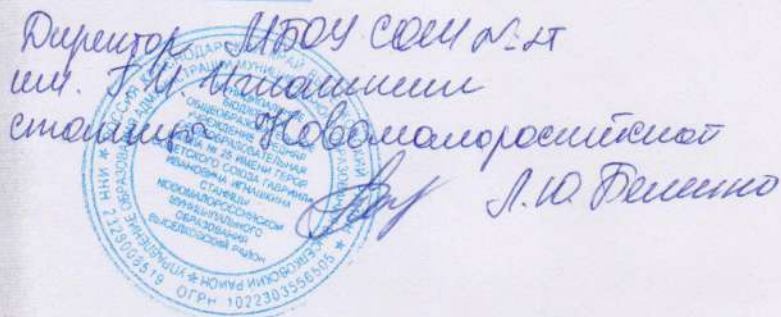 Директор МБОУ СОШ №25
им. Г.И. Игнашкина
станицы Новомалороссийской
Л.Ю. Беленко
РОССИЯ КРАСНОДАРСКИЙ КРАЙ ВЫСЕЛКОВСКИЙ РАЙОН
УПРАВЛЕНИЕ ОБРАЗОВАНИЯ АДМИНИСТРАЦИИ
МУНИЦИПАЛЬНОЕ
БЮДЖЕТНОЕ
ОБЩЕОБРАЗОВАТЕЛЬНОЕ
УЧРЕЖДЕНИЕ СРЕДНЯЯ
ОБЩЕОБРАЗОВАТЕЛЬНАЯ
ШКОЛА № 25 ИМЕНИ ГЕРОЯ
СОВЕТСКОГО СОЮЗА ГАВРИИЛА
ИВАНОВИЧА ИГНАШКИНА
СТАНИЦЫ
НОВОМАЛОРОССИЙСКОЙ
МУНИЦИПАЛЬНОГО
ОБРАЗОВАНИЯ
ВЫСЕЛКОВСКИЙ РАЙОН
ОГРН 1022303556505